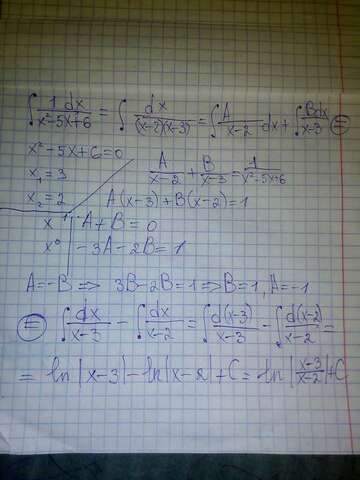 ∫ 1 dx / (x²-5x+6) = ∫ dx / ((x-2)(x-3)) = ∫ A / (x-2) dx + ∫ Bdx / (x-3) (=)
x²-5x+6=0
x₁=3
x₂=2
A/(x-2) + B/(x-3) = 1/(x²-5x+6)
A(x-3)+B(x-2)=1
x¹ | A+B=0
x⁰ | -3A-2B=1
A=-B => 3B-2B=1 => B=1, A=-1
(=) ∫ dx/(x-3) - ∫ dx/(x-2) = ∫ d(x-3)/(x-3) - ∫ d(x-2)/(x-2) =
= ln|x-3| - ln|x-2| + C = ln|(x-3)/(x-2)| + C